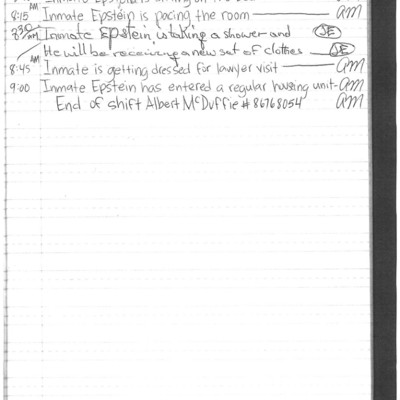 8:15 AM Inmate Epstein is pacing the room am
8:30 AM Inmate Epstein is taking a shower and JE
He will be receiving a new set of clothes JE
8:45 AM Inmate is getting dressed for lawyer visit am
9:00 Inmate Epstein has entered a regular housing unit- am
End of shift Albert McDuffie # 86768054 am